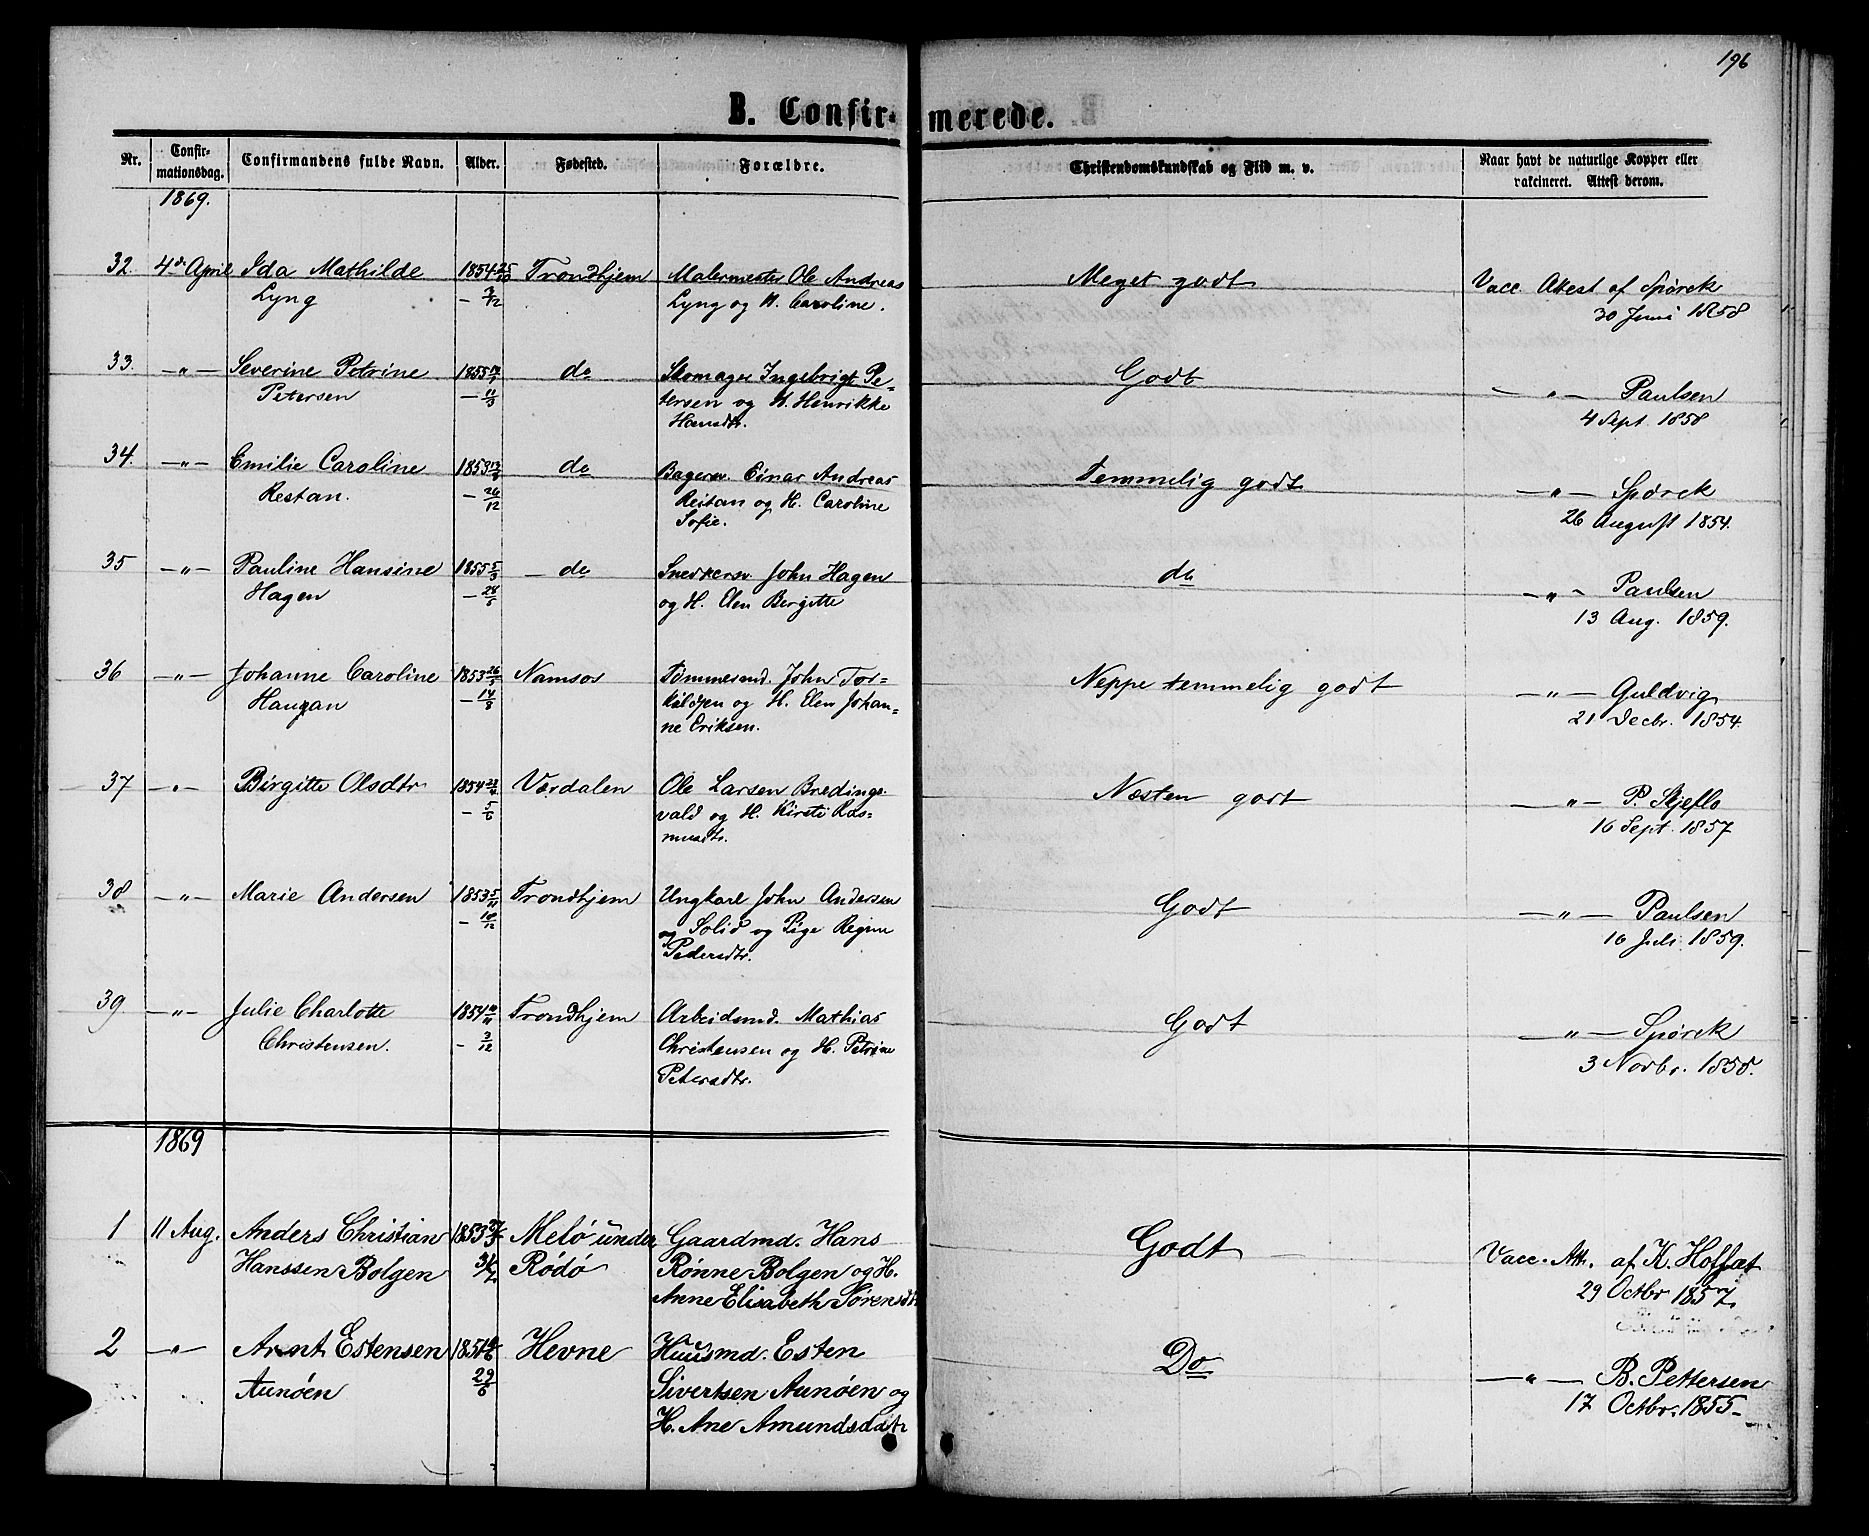 196
B. Confirmerede.
Nr. Confirmationsdag. Confirmandens fulde Navn. Alder. Fødested. Forældre. Christendomskundskab og Flid m. v. Naar havt de naturlige Kopper eller vakcineret. Attest derom.
1869.
32. 4de April Ida Mathilde 1854 25/10 Trondhjem Malermester Ole Andreas Meget godt Vacc. Attest af Spørck
Lyng Lyng og H. Caroline. 30 Juni 1858
33. -"- Severine Petrine 1855 do Skomager Ingebrigt Pe= Godt -"- Paulsen
Petersen tersen og H. Henrikke 4 Sept. 1858
Hansdtr.
34. -"- Emilie Caroline 1853 do Bagersv. Einar Andreas Temmelig godt -"- Spørck
Restan. - 26/12 Reitan og H. Caroline 26 August 1854.
Sofie.
35 -"- Pauline Hansine 1855 5/3 do Snedkersv. John Hagen do -"- Paulsen
Hagen - 28/5 og H. Elen Bergitte 13 Aug. 1859.
36 -"- Johanne Caroline 1853 26/5 Namsos Tømmermd. John Tor= Neppe temmelig godt -"- Guldvig
Haugan - 14/8 kildsen og H. Elen Johan= 21 Decbr. 1854.
ne Eriksen.
37 -"- Birgitte Olsdtr 1854 Værdalen Ole Larsen Bredings= Næsten godt -"- P. Skjeflo
- 5/6 vald og H. Kirsti Ras= 16 Sept. 1857
musdtr.
38 -"- Marie Andersen 1853 5/11 Trondhjem Ungkarl John Andersen Godt -"- Paulsen
- 18/12 og Solid og Pige Regine 16 Juli 1859.
Pedersdtr.
39. -"- Julie Charlotte 1854 Trondhjem Arbeidsmd. Mathias Godt -"- Spørck
Christensen. - 3/12 Christensen og H. Petrine 3 Novbr. 1858.
Petersdtr.
1869
1 11 Aug. Anders Christian 1853 27/3 Melø under Gaardmd. Hans Godt Vacc. Att. af K. Hoffat
Hanssen Bolgen Rødø Rønne Bolgen og H. 29 Octbr 1857.
Anne Elisabeth Sørensdt
2 -"- Arnt Estensen 1854 Hevne Huusmd. Esten Do -"- B. Pettersen
Aunøen 29/6 Sivertsen Aunøen og 17 Octbr. 1855-
H. Ane Amundsdatr